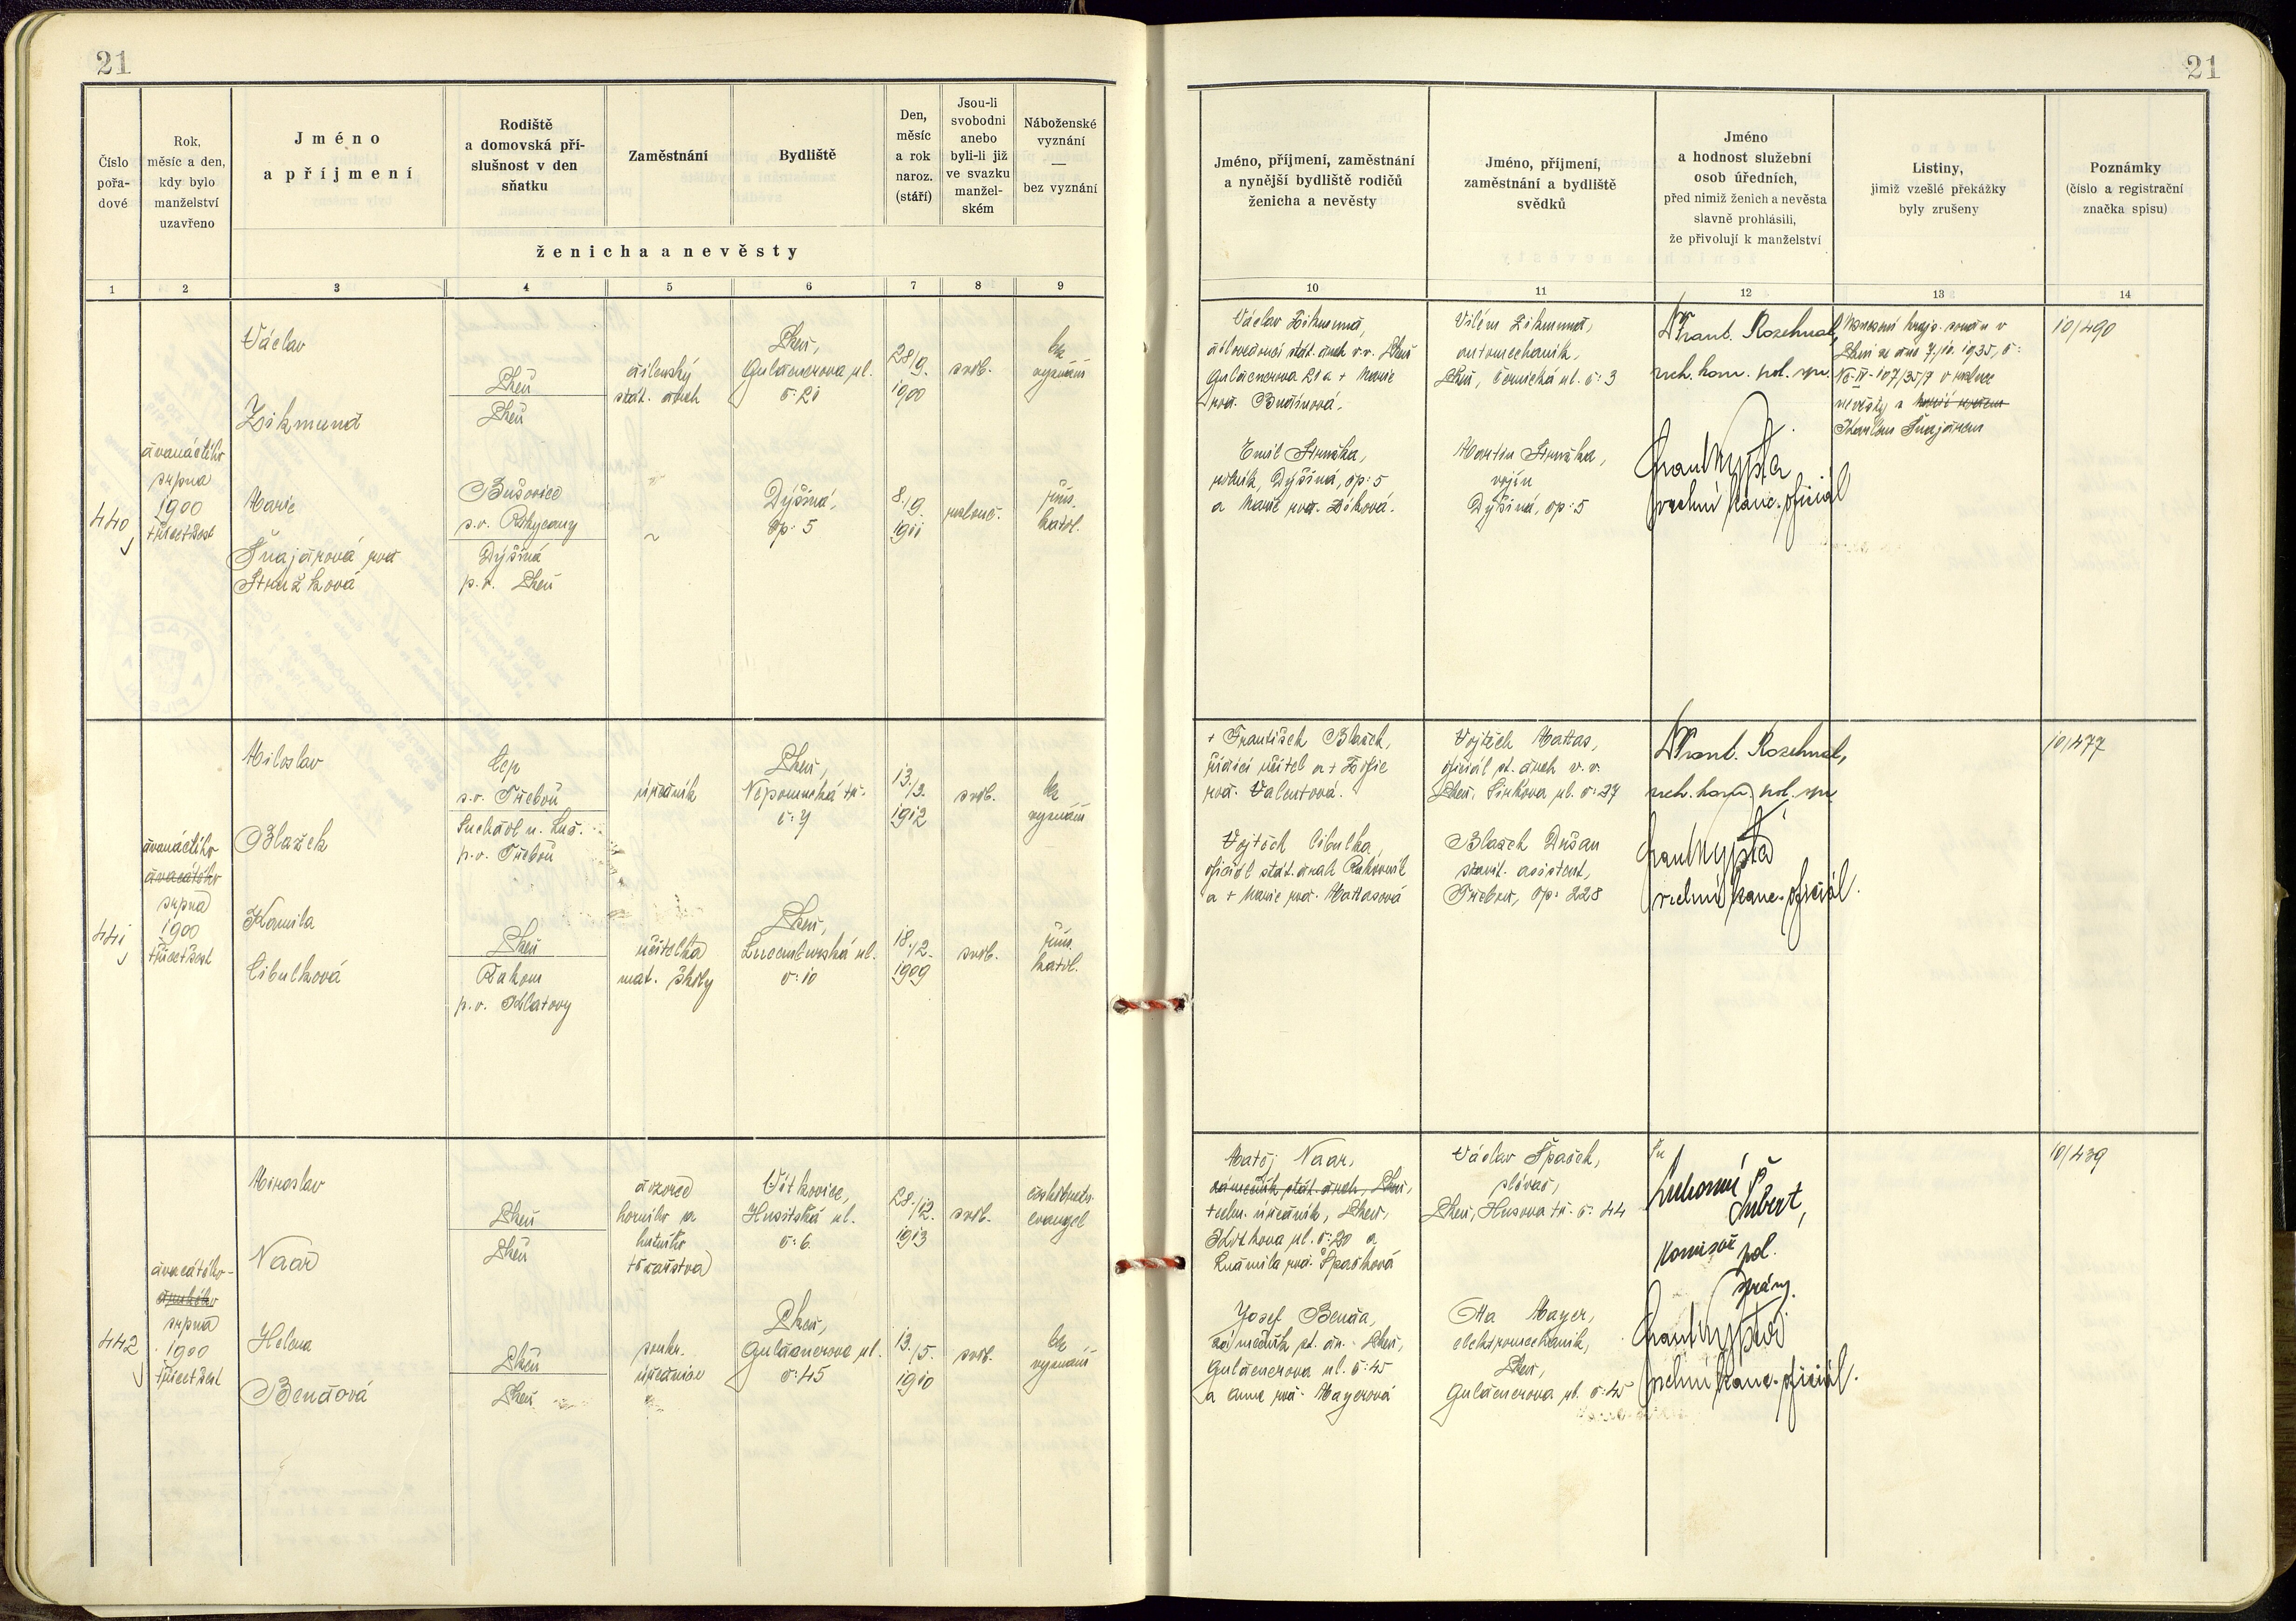 21
Číslo
pořa-
dové
Rok,
měsíc a den,
kdy bylo
manželství
uzavřeno
Jméno
a příjmení
Rodiště
a domovská pří-
slušnost v den
sňatku
Zaměstnání
Bydliště
Den,
měsíc
a rok
naroz.
(stáří)
Jsou-li
svobodni
anebo
byli-li již
ve svazku
manžel-
ském
Náboženské
vyznání
—
bez vyznání
ženicha a nevěsty
1 2 3 4 5 6 7 8 9
440
dvanáctého
srpna
1900
třicetšest
Václav
Zikmund
Plzeň
Plzeň
dílenský
stát. drah
Plzeň,
Guldenerova ul.
č: 21
28/9.
1900
svob.
bez
vyznání
Marie
Šnajdrová roz
Stružková
Bušovice
s.o. Rokycany
Dýšina
p.o. Plzeň
Dýšina,
čp: 5
8./9.
1911
rozlouč.
řím.
katol.
441
dvanáctého
dvacátého
srpna
1900
třicetšest
Miloslav
Blažek
s.o. Třeboň
Suchdol n. Luž.
p.o. Třeboň
úředník
Plzeň,
Nepomucká tř.
č: 7
13./3.
1912
svob.
bez
vyznání
Kamila
Cibulková
Plzeň
p.o. Klatovy
učitelka
mat. školy
Plzeň,
Lucemburská ul.
č: 10
18./2.
1909
svob.
řím.
katol.
442
dvacátého
srpna
1900
třicetšest
Miroslav
Naar
Plzeň
Plzeň
dozorce
horního a
hutního
Vítkovice,
Husitská ul.
č: 6.
28./12.
1913
svob.
českobratr.
evangel
Helena
Bendová
Plzeň
Plzeň
soukr.
úřednice
Plzeň,
Guldenerova ul.
č: 45
13./5.
1910
svob.
bez
vyznání
21
Jméno, příjmení, zaměstnání
a nynější bydliště rodičů
ženicha a nevěsty
Jméno, příjmení,
zaměstnání a bydliště
svědků
Jméno
a hodnost služební
osob úředních,
před nimiž ženich a nevěsta
slavně prohlásili,
že přivolují k manželství
Listiny,
jimiž vzešlé překážky
byly zrušeny
Poznámky
(číslo a registrační
značka spisu)
10 11 12 13 14
Václav Zikmund,
dílovedoucí stát. drah v.v. Plzeň
Guldenerova 21 a + Marie
roz. Budínová.
Emil Stružka,
rolník, Dýšina, čp: 5
a Marie roz. Zíková.
Vilém Zikmund,
automechanik,
Plzeň, černická ul. č: 3
Martin Stružka,
vojín
Dýšina, čp: 5
Dr Frant. Rosehnal,
vrch. kom. pol. spr.
vrchní kanc. oficiál
Usnesení krajs. soudu v
Plzni ze dne 7./10. 1935, č:
Nc-IV-107/35/7 o rozluce
nevěsty s
Karlem Šnajdrem
10/490
+ František Blažek,
řídící učitel a + Žofie
roz. Valentová.
Vojtěch Cibulka,
oficiál stát. drah Rakovník
a + Marie roz. Mattasová
Vojtěch Mattas,
oficiál st. drah v. v.
Plzeň, Sirkova ul. č: 27
Blažek Dušan
stavit. asistent,
Třeboň, čp: 228
Dr Frant. Rosehnal,
vrch. kom. pol. spr.
vrchní kanc. oficiál.
10/477
Matěj Naar,
zámečník stát. drah, Plzeň,
techn. úředník, Plzeň,
Kotkova ul. č: 20 a
Ludmila roz. Špačková
Josef Benda,
zámečník st. dr. Plzeň,
Guldenerova ul. č: 45
a Anna roz. Mayerová
Václav Špaček,
slévač,
Plzeň, Husova tř. č: 44
Otta Mayer,
elektromechanik,
Plzeň,
Guldenerova ul. č: 45
Lubomír
Šubert,
komisař pol.
správy.
vrchní kanc. oficiál.
10/439